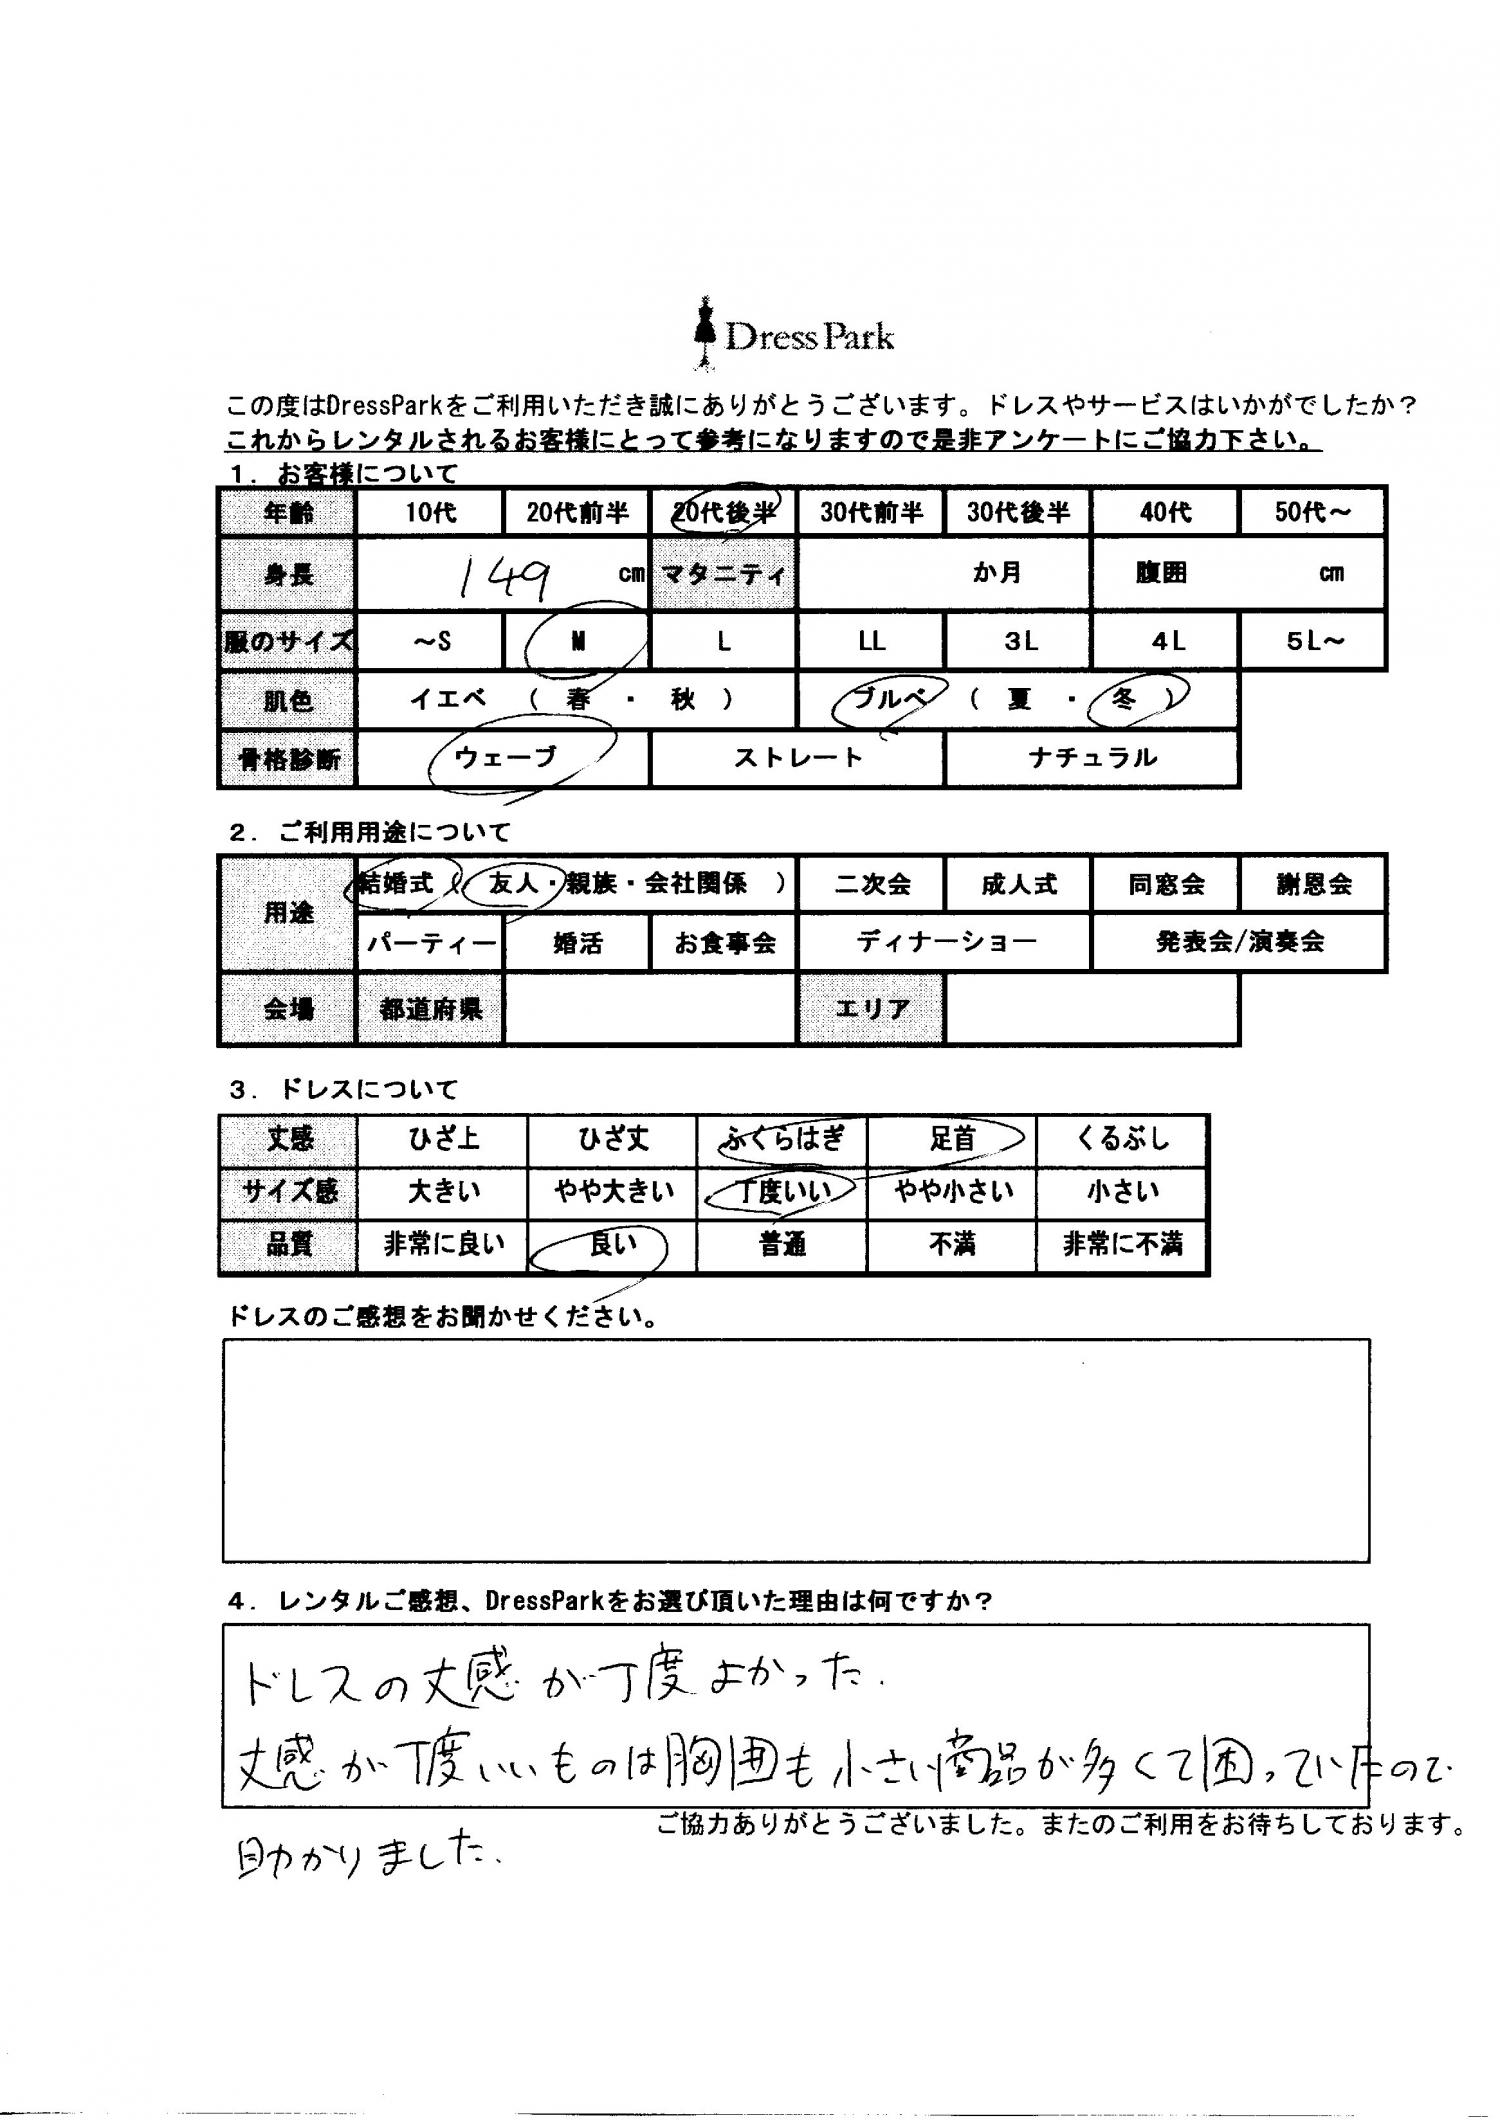 Dress Park
この度はDressParkをご利用いただき誠にありがとうございます。ドレスやサービスはいかがでしたか？
これからレンタルされるお客様にとって参考になりますので是非アンケートにご協力下さい。
１．お客様について
年齢 10代 20代前半 20代後半 30代前半 30代後半 40代 50代～
身長 149 cm マタニティ か月 腹囲 cm
服のサイズ ～S M L LL 3L 4L 5L～
肌色 イエベ （ 春 ・ 秋 ） ブルベ （ 夏 ・ 冬 ）
骨格診断 ウェーブ ストレート ナチュラル
２．ご利用用途について
用途 結婚式（ 友人・親族・会社関係 ） 二次会 成人式 同窓会 謝恩会
パーティー 婚活 お食事会 ディナーショー 発表会/演奏会
会場 都道府県 エリア
３．ドレスについて
丈感 ひざ上 ひざ丈 ふくらはぎ 足首 くるぶし
サイズ感 大きい やや大きい 丁度いい やや小さい 小さい
品質 非常に良い 良い 普通 不満 非常に不満
ドレスのご感想をお聞かせください。
４．レンタルご感想、DressParkをお選び頂いた理由は何ですか？
ドレスの丈感が丁度よかった.
丈感が丁度いいものは胸囲も小さい商品が多くて困っていたので
ご協力ありがとうございました。またのご利用をお待ちしております。
助かりました.